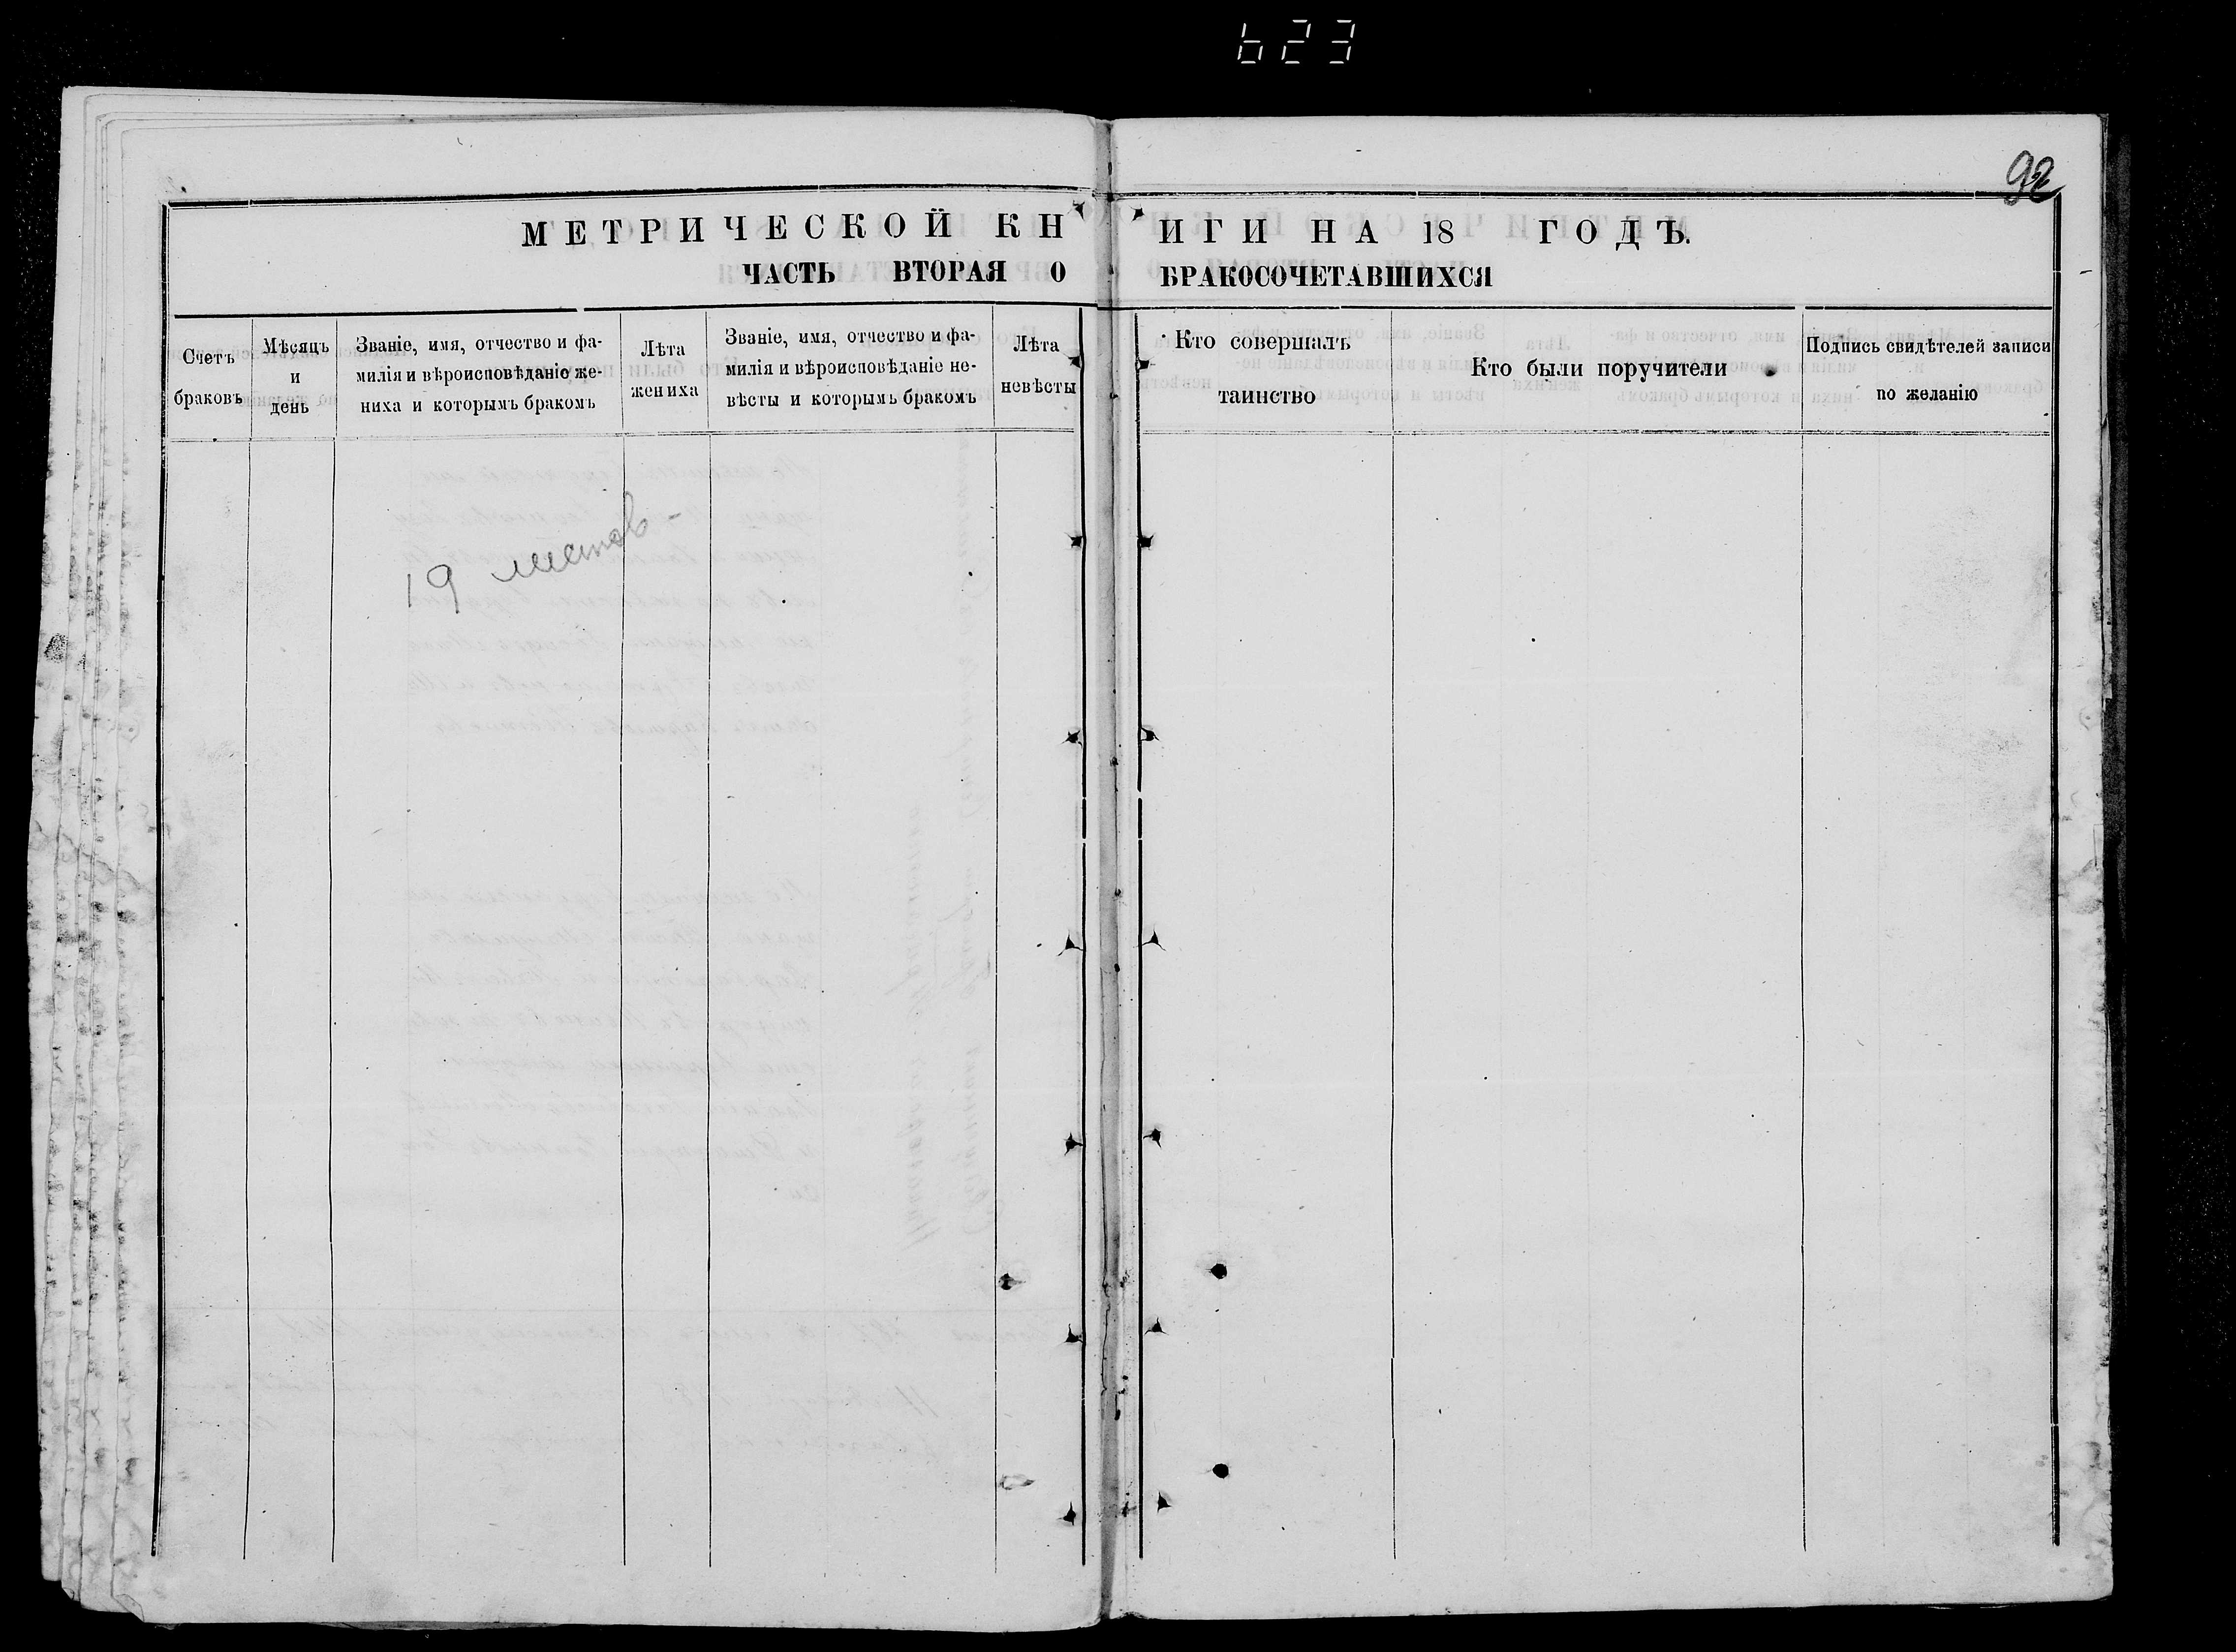 623
92
МЕТРИЧЕСКОЙ КНИГИ НА 18 ГОДЪ.
ЧАСТЬ ВТОРАЯ О БРАКОСОЧЕТАВШИХСЯ
Счетъ
браковъ
Мѣсяцъ
и
день
Званіе, имя, отчество и фа-
милія и вѣроисповѣданіе же-
ниха и которымъ бракомъ
Лѣта
жениха
Званіе, имя, отчество и фа-
милія и вѣроисповѣданіе не-
вѣсты и которымъ бракомъ
Лѣта
невѣсты
Кто совершалъ
таинство
Кто были поручители
Подпись свидѣтелей записи
по желанію
19 листов